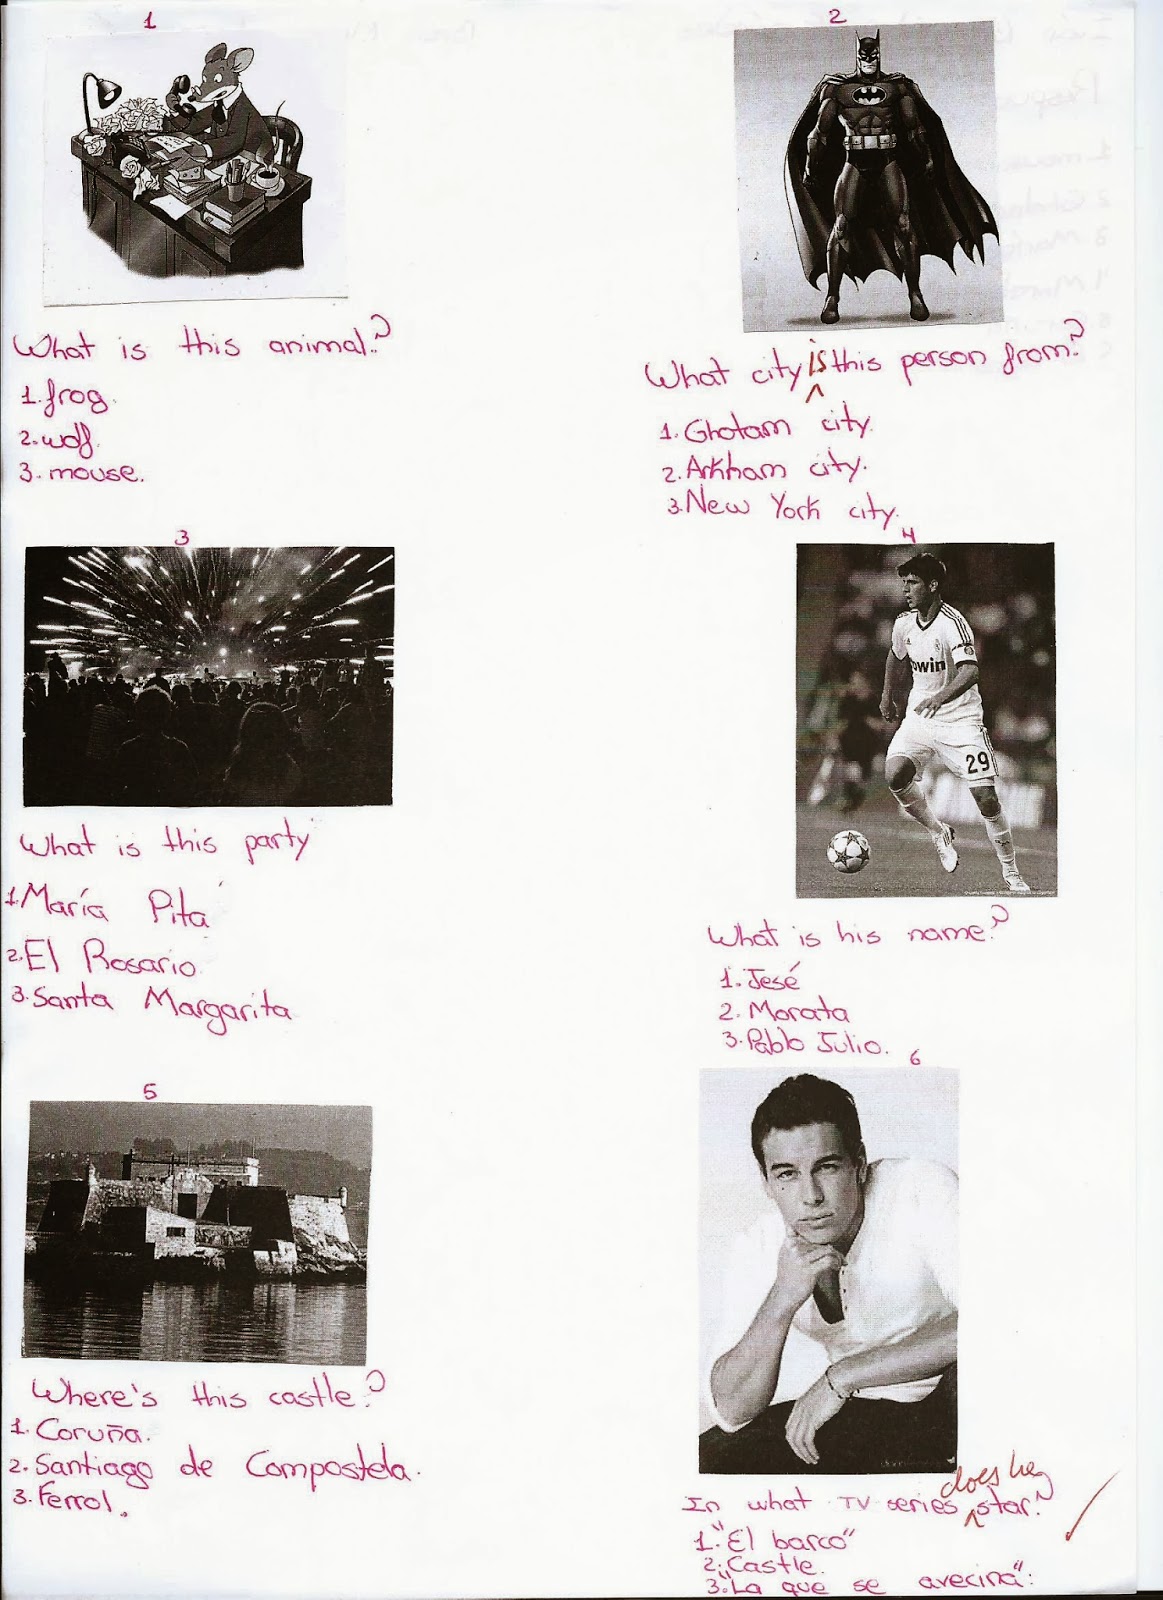 1
What is this animal?
1. frog.
2. wolf.
3. mouse.
2
What city is this person from?
1. Ghotam city.
2. Arkham city.
3. New York city.
3
What is this party
1. María Pita
2. El Rosario
3. Santa Margarita
4
bwin
29
What is his name?
1. Jesé
2. Morata
3. Pablo Julio.
5
Where's this castle?
1. Coruña.
2. Santiago de Compostela.
3. Ferrol.
6
In what TV series does he star?
1. "El barco"
2. Castle.
3. "La que se avecina".